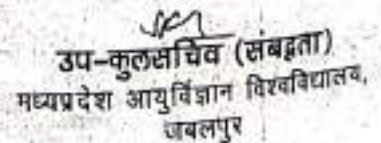 उप-कुलसचिव (संबद्धता)
मध्यप्रदेश आयुर्विज्ञान विश्वविद्यालय,
जबलपुर